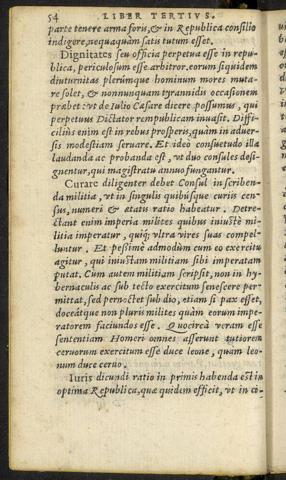 54 LIBER TERTIVS.
parte tenere arma foris, & in Republica consilio
indigere, nequaquàm satis tutum esset.
Dignitates seu officia perpetua esse in repu-
blica, periculosum esse arbitror. eorum siquidem
diuturnitas plerúmque hominum mores muta-
re solet, & nonnunquam tyrannidis occasionem
præbet: vt de Iulio Cæsare dicere possumus, qui
perpetuus Dictator rempublicam inuasit. Diffi-
ciliùs enim est in rebus prosperis, quàm in aduer-
sis modestiam seruare. Et ideò consuetudo illa
laudanda ac probanda est, vt duo consules desi-
gnentur, qui magistratu annuo fungantur.
Curare diligenter debet Consul in scriben-
da militia, vt in singulis quibúsque curiis cen-
sus, numeri & ætatis ratio habeatur. Detre-
ctant enim imperia milites quibus iniustè mi-
litia imperatur, quiq; vltra vires suas compel-
luntur. Et pessimè admodùm cum eo exercitu
agitur, qui iniustam militiam sibi imperatam
putat. Cum autem militiam scripsit, non in hy-
bernaculis ac sub tecto exercitum senescere per-
mittat, sed pernoctet sub dio, etiam si pax esset,
doceátque non pluris milites quàm eorum impe-
ratorem faciundos esse. Quocircà veram esse
sententiam Homeri omnes asserunt tutiorem
ceruorum exercitum esse duce leone, quàm leo-
num duce ceruo.
Iuris dicundi ratio in primis habenda est in
optima Republica, quæ quidem efficit, vt in ci-